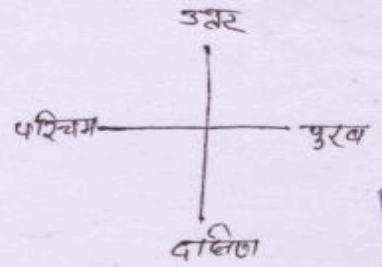 उत्तर
पश्चिम
पुरब
दाक्षिण